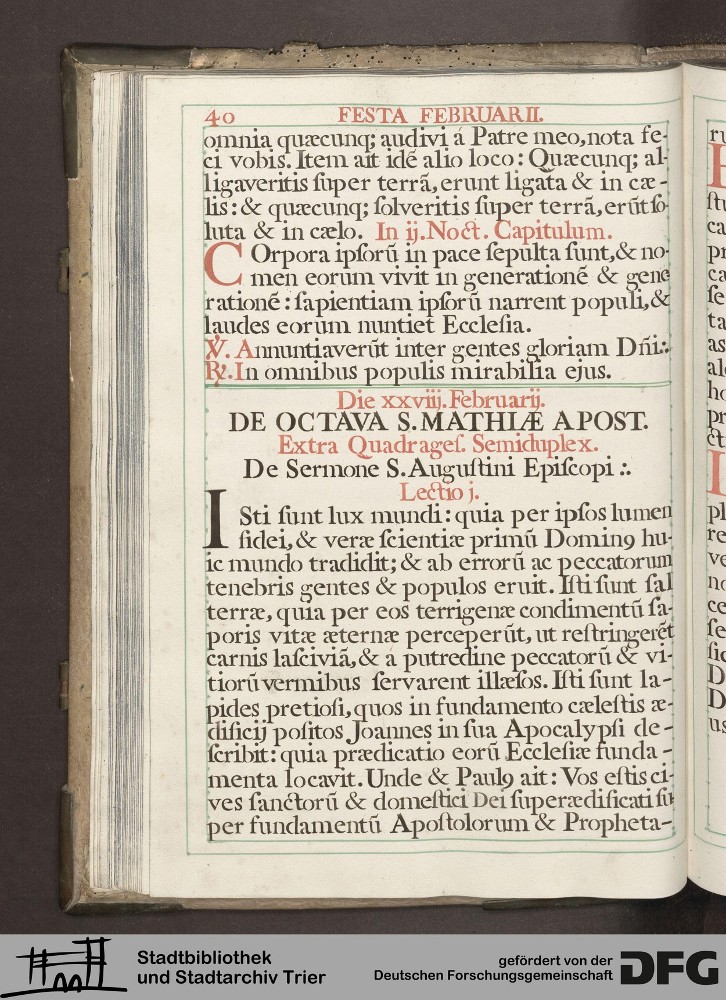 40 FESTA FEBRUARII.
omnia quæcunq; audivi á Patre meo, nota fe-
ci vobis. Item ait idē alio loco: Quæcunq; al-
ligaveritis ſuper terrā, erunt ligata & in cæ-
lis: & quæcunq; ſolveritis ſuper terrā, erūt ſo-
luta & in cælo. In ij. Noct. Capitulum.
COrpora ipſorū in pace ſepulta ſunt, & no-
men eorum vivit in generationē & gene
rationē: ſapientiam ipſorū narrent populi, &
laudes eorum nuntiet Eccleſia.
℣. Annuntiaverūt inter gentes gloriam Dn̄i:.
℟. In omnibus populis mirabilia ejus.
Die xxviij. Februarij.
DE OCTAVA S. MATHIÆ APOST.
Extra Quadrageſ. Semiduplex.
De Sermone S. Auguſtini Epiſcopi ∴
Lectio j.
ISti ſunt lux mundi: quia per ipſos lumen
fidei, & veræ ſcientiæ primū Dominꝰ hu-
ic mundo tradidit; & ab errorū ac peccatorum
tenebris gentes & populos eruit. Iſti ſunt ſal
terræ, quia per eos terrigenæ condimentū ſa-
poris vitæ æternæ perceperūt, ut reſtringerēt
carnis laſciviā, & a putredine peccatorū & vi-
tiorū vermibus ſervarent illæſos. Iſti ſunt la-
pides pretioſi, quos in fundamento cæleſtis æ-
dificij poſitos Joannes in ſua Apocalypſi de-
ſcribit: quia prædicatio eorū Eccleſiæ funda-
menta locavit. Unde & Paulꝰ ait: Vos eſtis ci-
ves ſanctorū & domeſtici Dei ſuperædificati ſu
per fundamentū Apoſtolorum & Propheta-
Stadtbibliothek
und Stadtarchiv Trier
gefördert von der
Deutschen Forschungsgemeinschaft
DFG